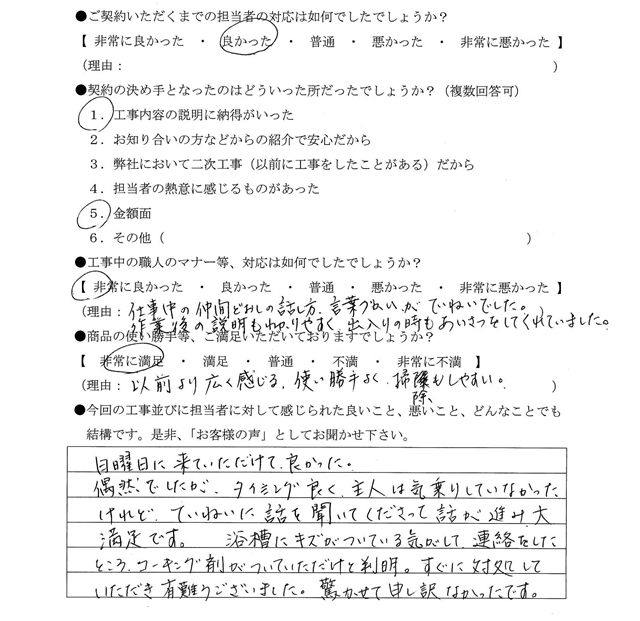 ●ご契約いただくまでの担当者の対応は如何でしたでしょうか？
【 非常に良かった ・ 良かった ・ 普通 ・ 悪かった ・ 非常に悪かった 】
（理由： ）
●契約の決め手となったのはどういった所だったでしょうか？（複数回答可）
１．工事内容の説明に納得がいった
２．お知り合いの方などからの紹介で安心だから
３．弊社において二次工事（以前に工事をしたことがある）だから
４．担当者の熱意に感じるものがあった
５．金額面
６．その他（ ）
●工事中の職人のマナー等、対応は如何でしたでしょうか？
【 非常に良かった ・ 良かった ・ 普通 ・ 悪かった ・ 非常に悪かった 】
（理由：仕事中の仲間どおしの話し方、言葉づかいがていねいでした。 ）
作業後の説明もわかりやすく、出入りの時もあいさつをしてくれていました。
●商品の使い勝手等、ご満足いただいておりますでしょうか？
【 非常に満足 ・ 満足 ・ 普通 ・ 不満 ・ 非常に不満 】
（理由：以前より広く感じる、使い勝手よく、掃除もしやすい。 ）
●今回の工事並びに担当者に対して感じられた良いこと、悪いこと、どんなことでも
結構です。是非、「お客様の声」としてお聞かせ下さい。
日曜日に来ていただけて、良かった。
偶然でしたが、タイミング良く、主人は気乗りしていなかった
けれど、ていねいに話を聞いてくださって話が進み、大
満足です。 浴槽にキズがついている気がして、連絡をした
ところ、コーキング剤がついていただけと判明。すぐに対処して
いただき有難うございました。驚かせて申し訳なかったです。